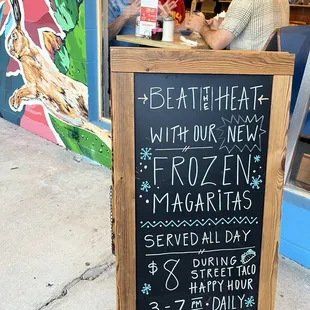 BEAT THE HEAT
WITH OUR NEW
FROZEN
MAGARITAS
SERVED ALL DAY
$8 DURING
STREET TACO
HAPPY HOUR
3-7 PM DAILY